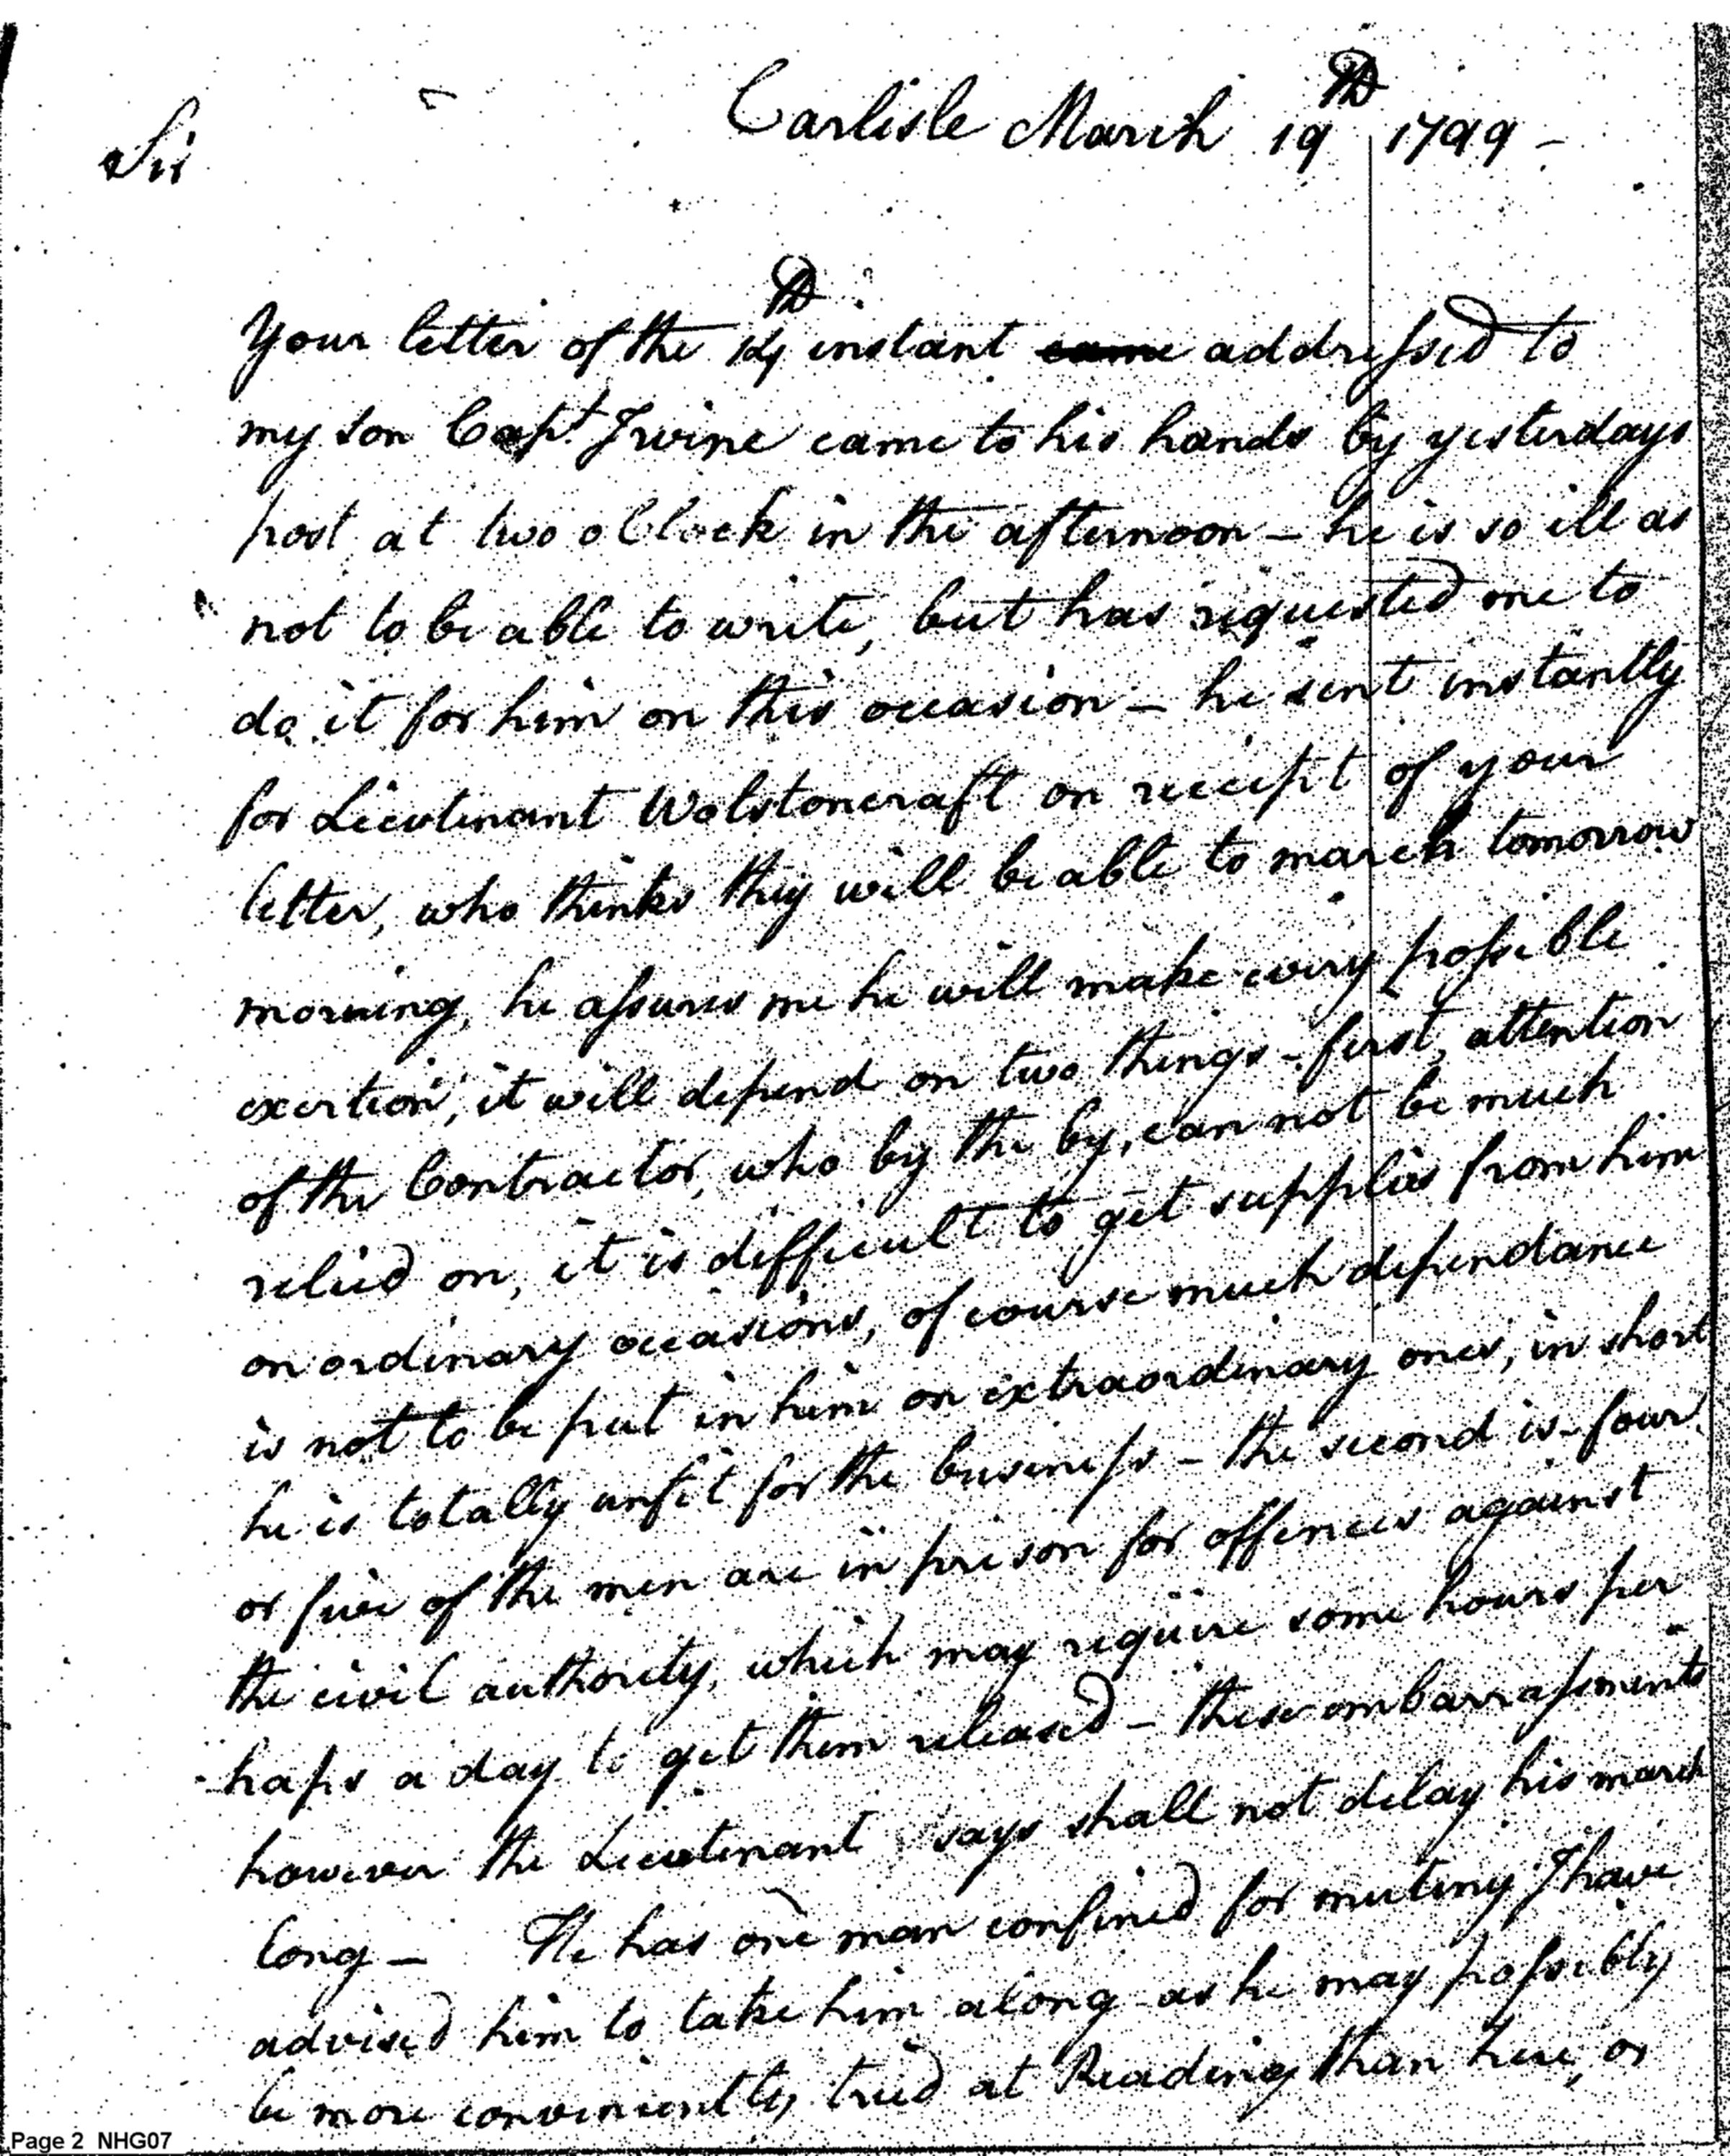 Carlisle March 19th 1799 -
Sir
Your letter of the 14th instant came addressed to
my son Capt. Irvine came to his hands by yesterdays
post at two oClock in the afternoon - he is so ill as
not to be able to write, but has requested me to
do it for him on this occasion - he sent instantly
for Lieutenant Wolstoncraft on receipt of your
letter, who thinks they will be able to march tomorrow
morning, he assures me he will make every possible
exertion, it will depend on two things - first, attention
of the Contractor, who by the by, can not be much
relied on, it is difficult to get supplies from him
on ordinary occasions, of course much dependance
is not to be put in him on extraordinary ones, in short
he is totally unfit for the business - the second is - four
or five of the men are in prison for offences against
the civil authority, which may require some hours per
haps a day to get them released - these embarrassments
however the Lieutenant says shall not delay his march
long - He has one man confined for mutiny I have
advised him to take him along as he may possibly
be more conveniently tried at Reading than here, or
Page 2 NHG07